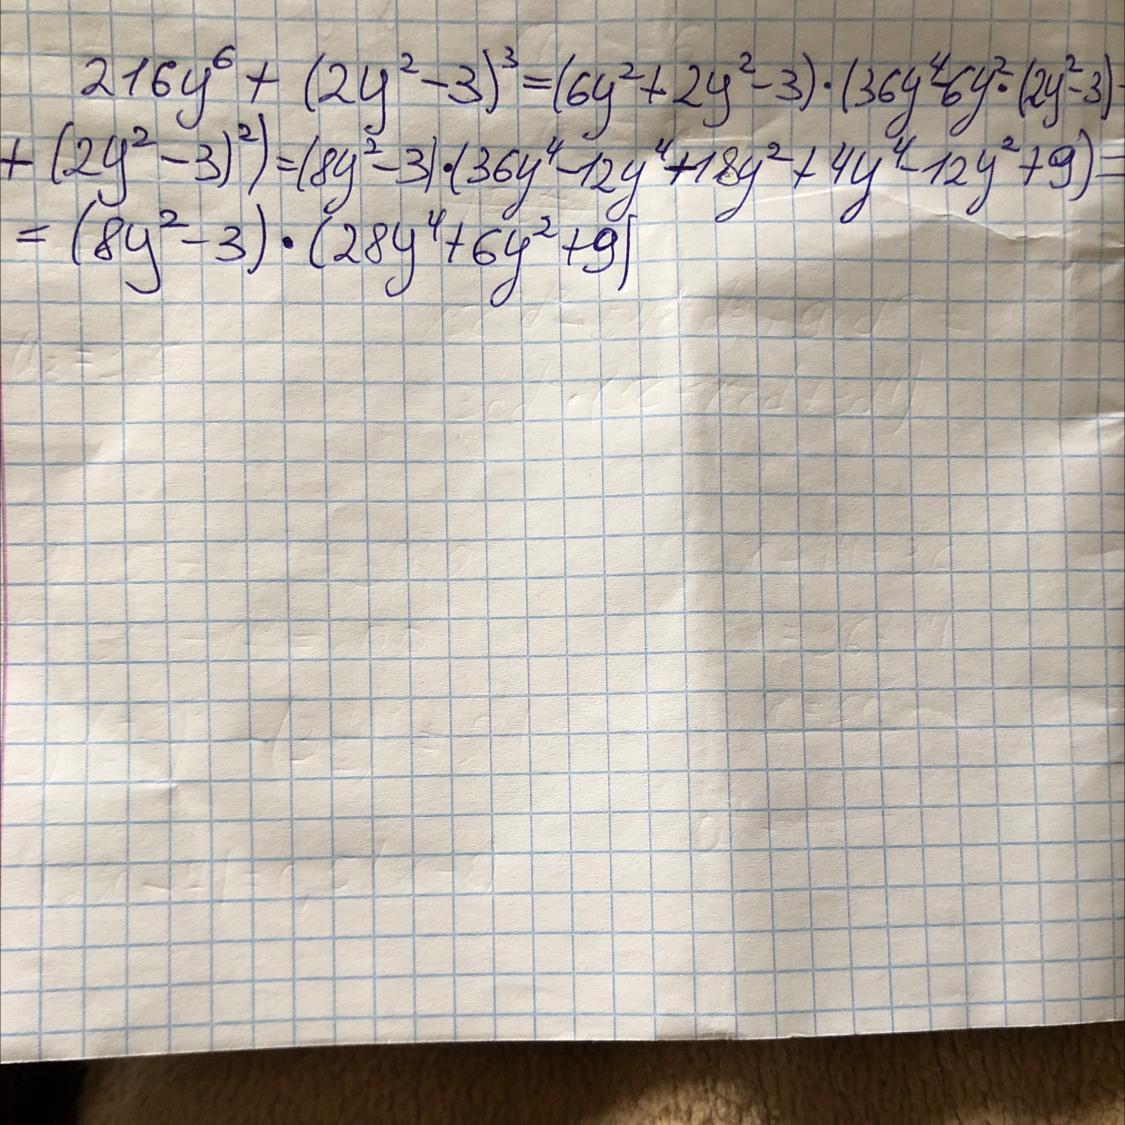 216y⁶ + (2y² – 3)³ = (6y² + 2y² – 3) · (36y⁴ – 6y² · (2y² – 3) +
+ (2y² – 3)²) = (8y² – 3) · (36y⁴ – 12y⁴ + 18y² + 4y⁴ – 12y² + 9) =
= (8y² – 3) · (28y⁴ + 6y² + 9)